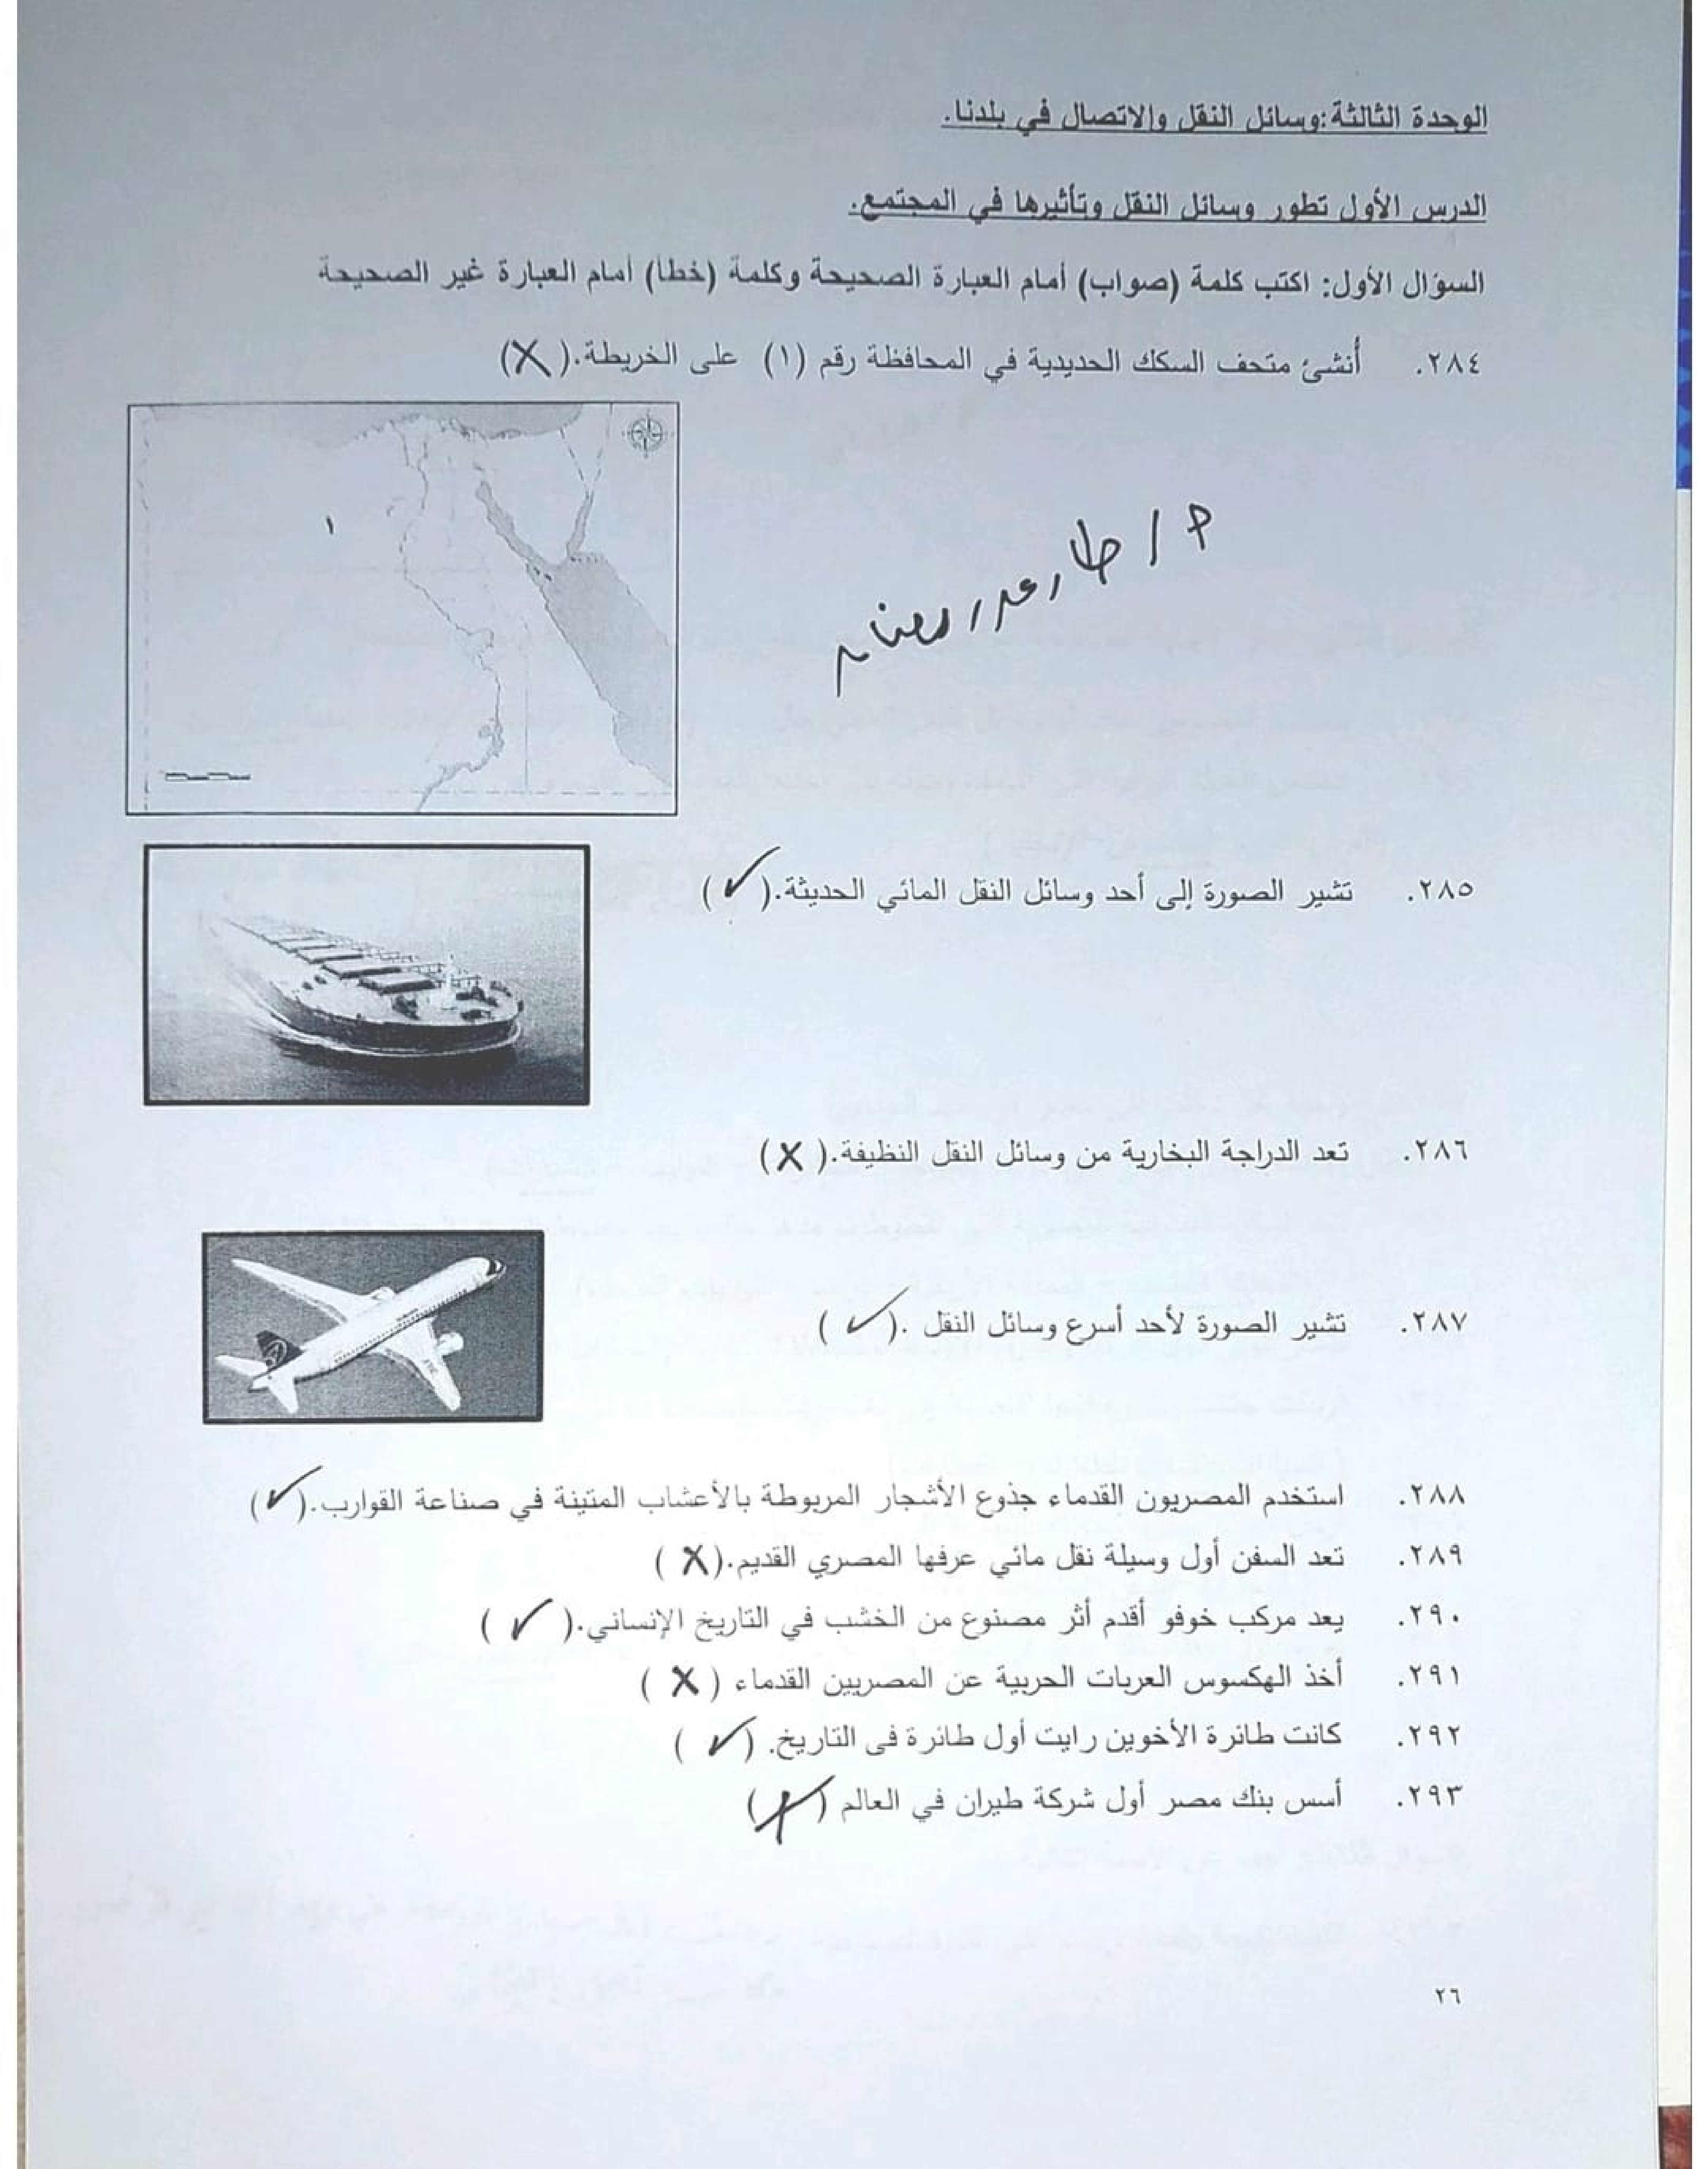 الوحدة الثالثة:وسائل النقل والاتصال في بلدنا.
الدرس الأول تطور وسائل النقل وتأثيرها في المجتمع.
السؤال الأول: اكتب كلمة (صواب) أمام العبارة الصحيحة وكلمة (خطأ) أمام العبارة غير الصحيحة
٢٨٤. أُنشئ متحف السكك الحديدية في المحافظة رقم (١) على الخريطة.(X)
١
٢٨٥. تشير الصورة إلى أحد وسائل النقل المائي الحديثة.(✓)
٢٨٦. تعد الدراجة البخارية من وسائل النقل النظيفة.(X)
٢٨٧. تشير الصورة لأحد أسرع وسائل النقل .(✓)
٢٨٨. استخدم المصريون القدماء جذوع الأشجار المربوطة بالأعشاب المتينة في صناعة القوارب.(✓)
٢٨٩. تعد السفن أول وسيلة نقل مائي عرفها المصري القديم.(X)
٢٩٠. يعد مركب خوفو أقدم أثر مصنوع من الخشب في التاريخ الإنساني.(✓)
٢٩١. أخذ الهكسوس العربات الحربية عن المصريين القدماء (X)
٢٩٢. كانت طائرة الأخوين رايت أول طائرة فى التاريخ. (✓)
٢٩٣. أسس بنك مصر أول شركة طيران في العالم (X)
٢٦